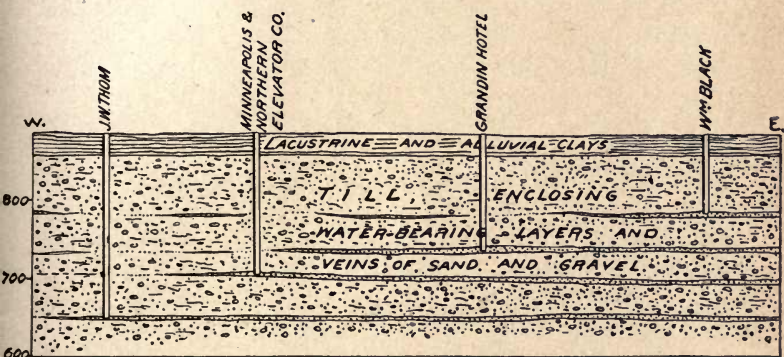 J.W. THOM
MINNEAPOLIS &
NORTHERN
ELEVATOR CO.
GRANDIN HOTEL
WM BLACK
W.
E
LACUSTRINE AND ALLUVIAL CLAYS
800
TILL, ENCLOSING
WATER-BEARING LAYERS AND
700
VEINS OF SAND AND GRAVEL
600